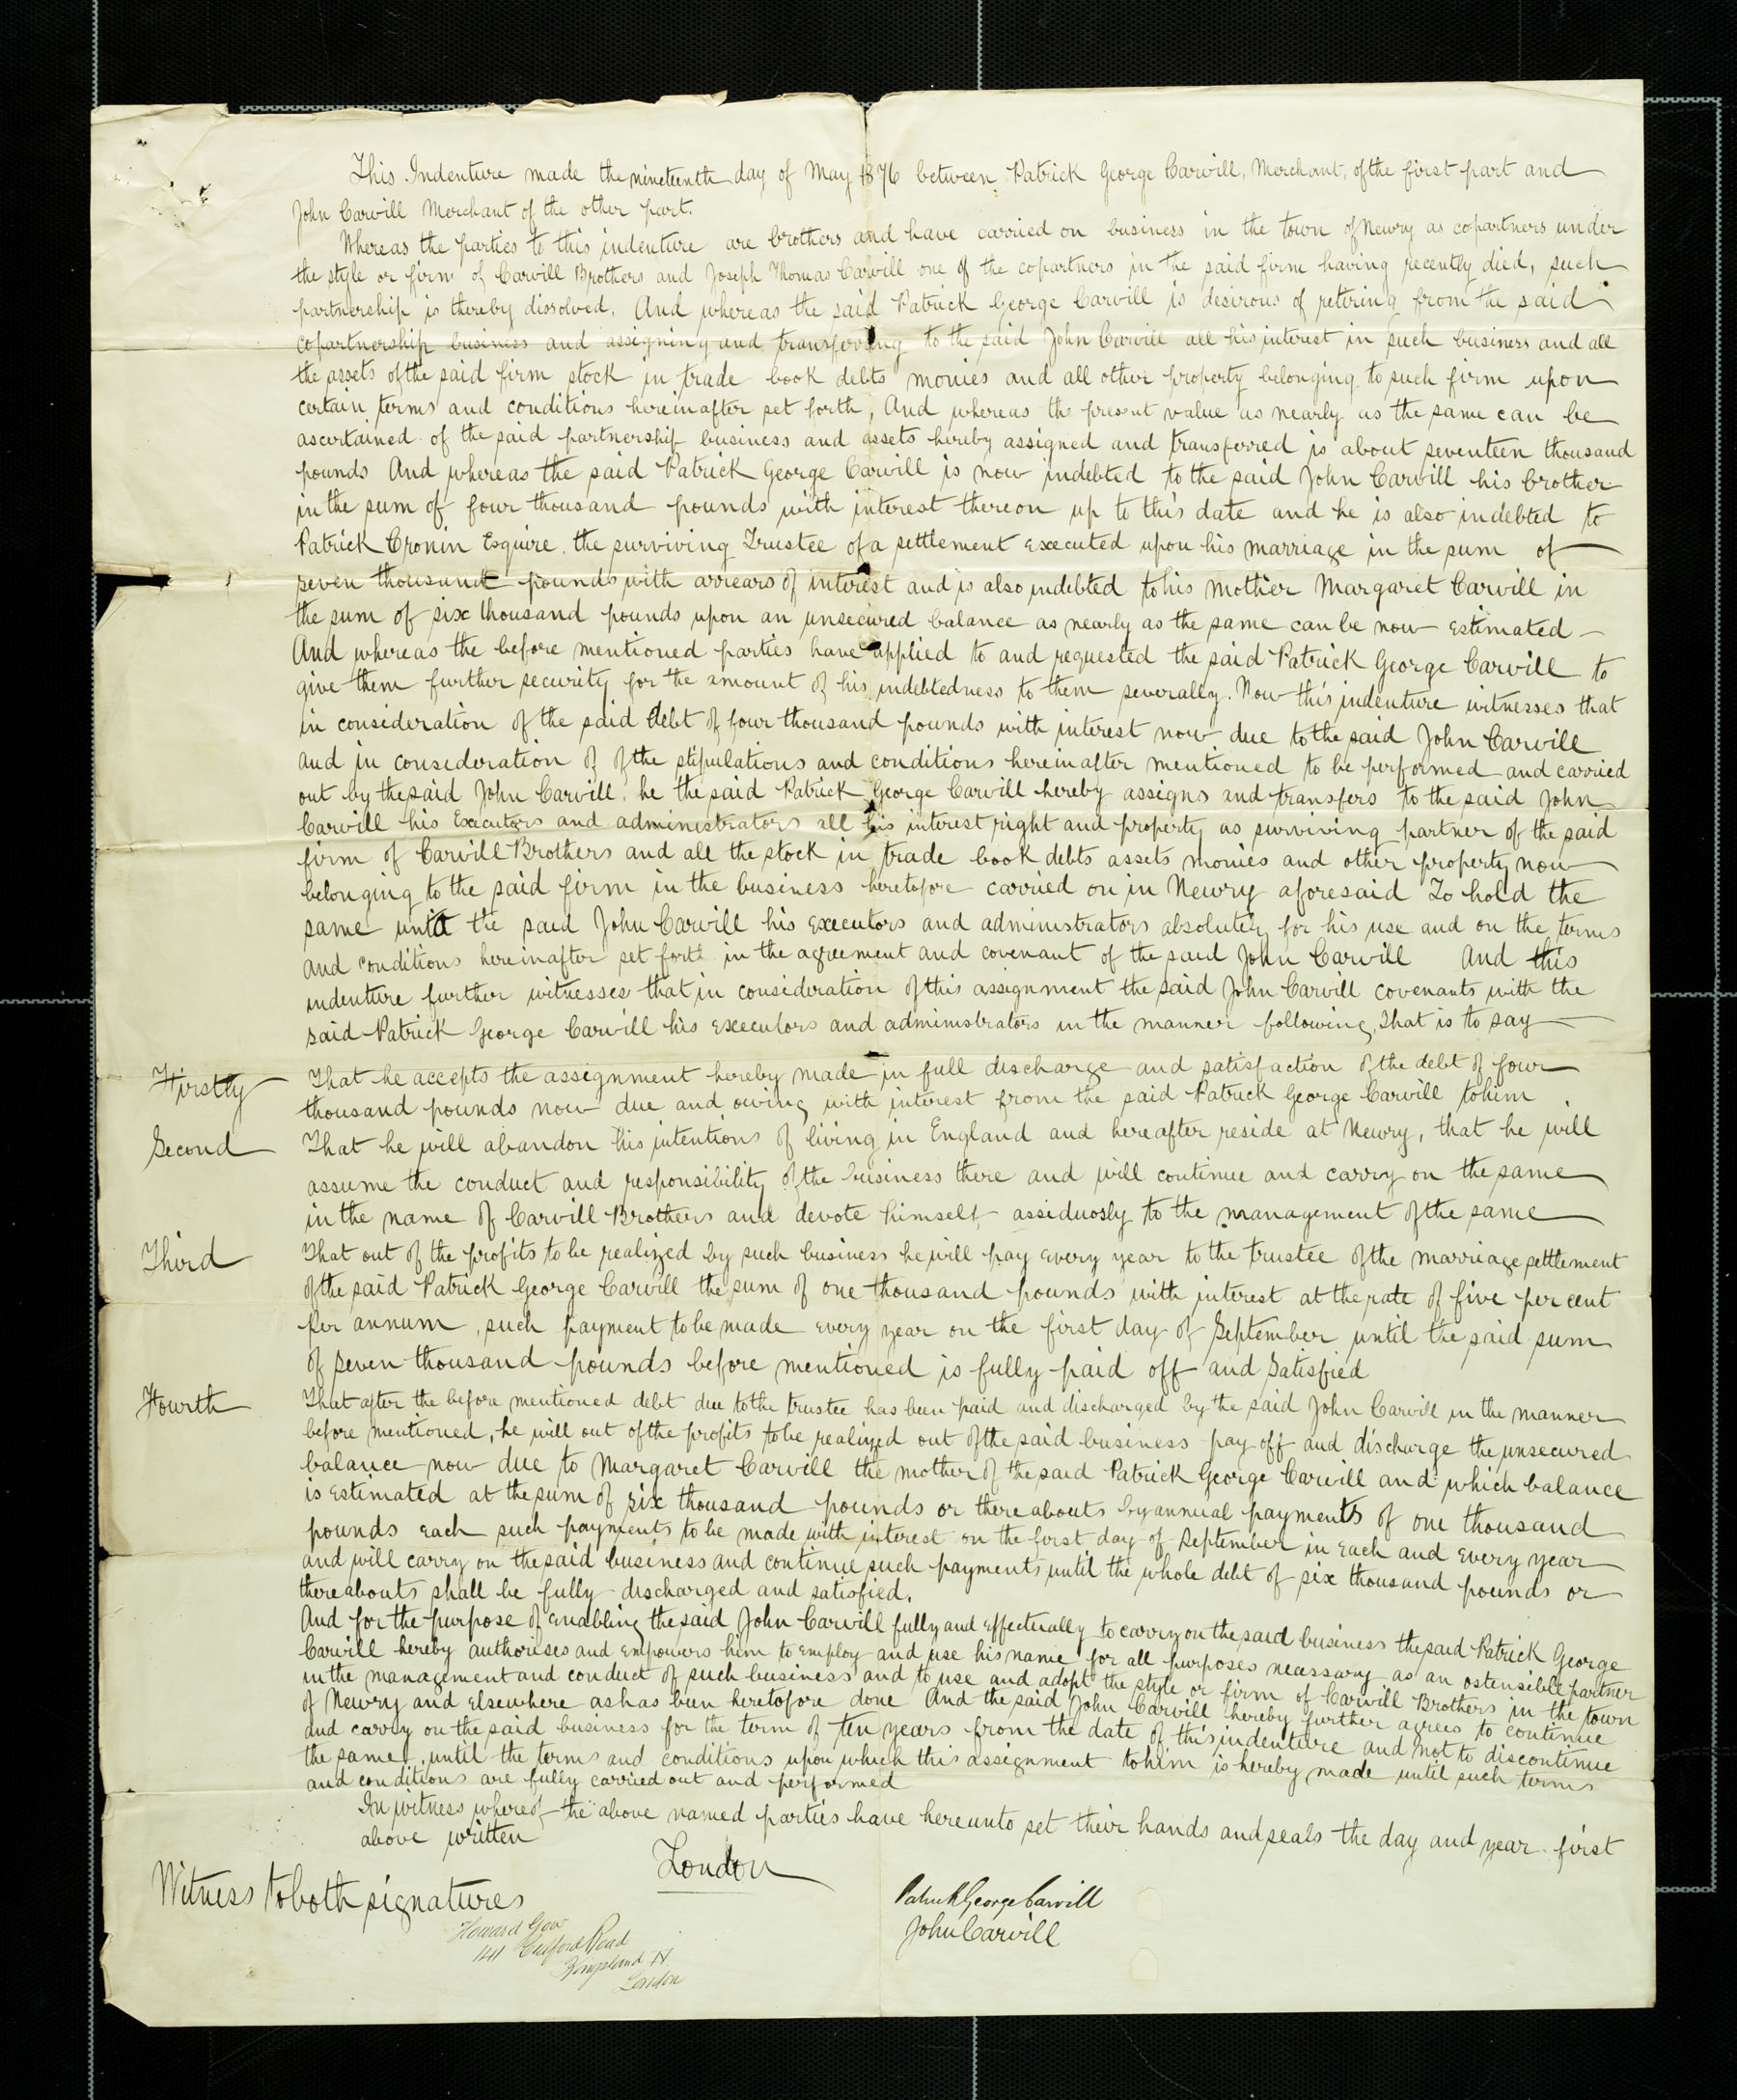 This Indenture made the nineteenth day of May 1876 between Patrick George Carvill, Merchant, of the first part and
John Carvill Merchant of the other part.
Whereas the parties to this indenture are brothers and have carried on business in the town of Newry as copartners under
the style or firm of Carvill Brothers and Joseph Thomas Carvill one of the copartners in the said firm having recently died, such
partnership is thereby dissolved, And whereas the said Patrick George Carvill is desirous of retiring from the said
copartnership business and assigning and transferring to the said John Carvill all his interest in such business and all
the assets of the said firm stock in trade book debts monies and all other property belonging to such firm upon
certain terms and conditions hereinafter set forth, And whereas the present value as nearly as the same can be
ascertained of the said partnership business and assets hereby assigned and transferred is about seventeen thousand
pounds And whereas the said Patrick George Carvill is now indebted to the said John Carvill his brother
in the sum of four thousand pounds with interest thereon up to this date and he is also indebted to
Patrick Cronin Esquire, the surviving Trustee of a settlement executed upon his marriage in the sum of
seven thousand pounds with arrears of interest and is also indebted to his Mother Margaret Carvill in
the sum of six thousand pounds upon an unsecured balance as nearly as the same can be now estimated –
And whereas the before mentioned parties have applied to and requested the said Patrick George Carvill to
give them further security for the amount of his indebtedness to them severally. Now this indenture witnesses that
in consideration of the said debt of four thousand pounds with interest now due to the said John Carvill
and in consideration of of the stipulations and conditions hereinafter mentioned to be performed and carried
out by the said John Carvill, he the said Patrick George Carvill hereby assigns and transfers to the said John
Carvill his Executors and administrators all his interest right and property as surviving partner of the said
firm of Carvill Brothers and all the stock in trade book debts assets monies and other property now
belonging to the said firm in the business heretofore carried on in Newry aforesaid To hold the
same unto the said John Carvill his executors and administrators absolutely for his use and on the terms
and conditions hereinafter set forth in the agreement and covenant of the said John Carvill And this
indenture further witnesses that in consideration of this assignment the said John Carvill covenants with the
said Patrick George Carvill his executors and administrators in the manner following, that is to say
Firstly That he accepts the assignment hereby made in full discharge and satisfaction of the debt of four
thousand pounds now due and owing with interest from the said Patrick George Carvill to him
Second That he will abandon his intentions of living in England and hereafter reside at Newry, that he will
assume the conduct and responsibility of the business there and will continue and carry on the same
in the name of Carvill Brothers and devote himself assiduosly to the management of the same
Third That out of the profits to be realized by such business he will pay every year to the trustee of the marriage settlement
of the said Patrick George Carvill the sum of one thousand pounds with interest at the rate of five per cent
Per annum, such payment to be made every year on the first day of September until the said sum
of seven thousand pounds before mentioned is fully paid off and satisfied
Fourth That after the before mentioned debt due to the trustee has been paid and discharged by the said John Carvill in the manner
before mentioned, he will out of the profits to be realized out of the said business pay off and discharge the unsecured
balance now due to Margaret Carvill the mother of the said Patrick George Carvill and which balance
is estimated at the sum of six thousand pounds or thereabouts by annual payments of one thousand
pounds each such payments to be made with interest on the first day of September in each and every year
and will carry on the said business and continue such payments until the whole debt of six thousand pounds or
thereabouts shall be fully discharged and satisfied.
And for the purpose of enabling the said John Carvill fully and effectually to carry on the said business the said Patrick George
Carvill hereby authorises and empowers him to employ and use his name for all purposes necessary as an ostensible partner
in the management and conduct of such business and to use and adopt the style or firm of Carvill Brothers in the town
of Newry and elsewhere as has been heretofore done And the said John Carvill hereby further agrees to continue
and carry on the said business for the term of ten years from the date of this indenture and not to discontinue
the same, until the terms and conditions upon which this assignment to him is hereby made until such terms
and conditions are fully carried out and performed
In witness whereof the above named parties have hereunto set their hands and seals the day and year first
above written
London
Witness to both signatures
Patrick George Carvill
John Carvill
Howard Gow
141 Culford Road
Kingsland N
London